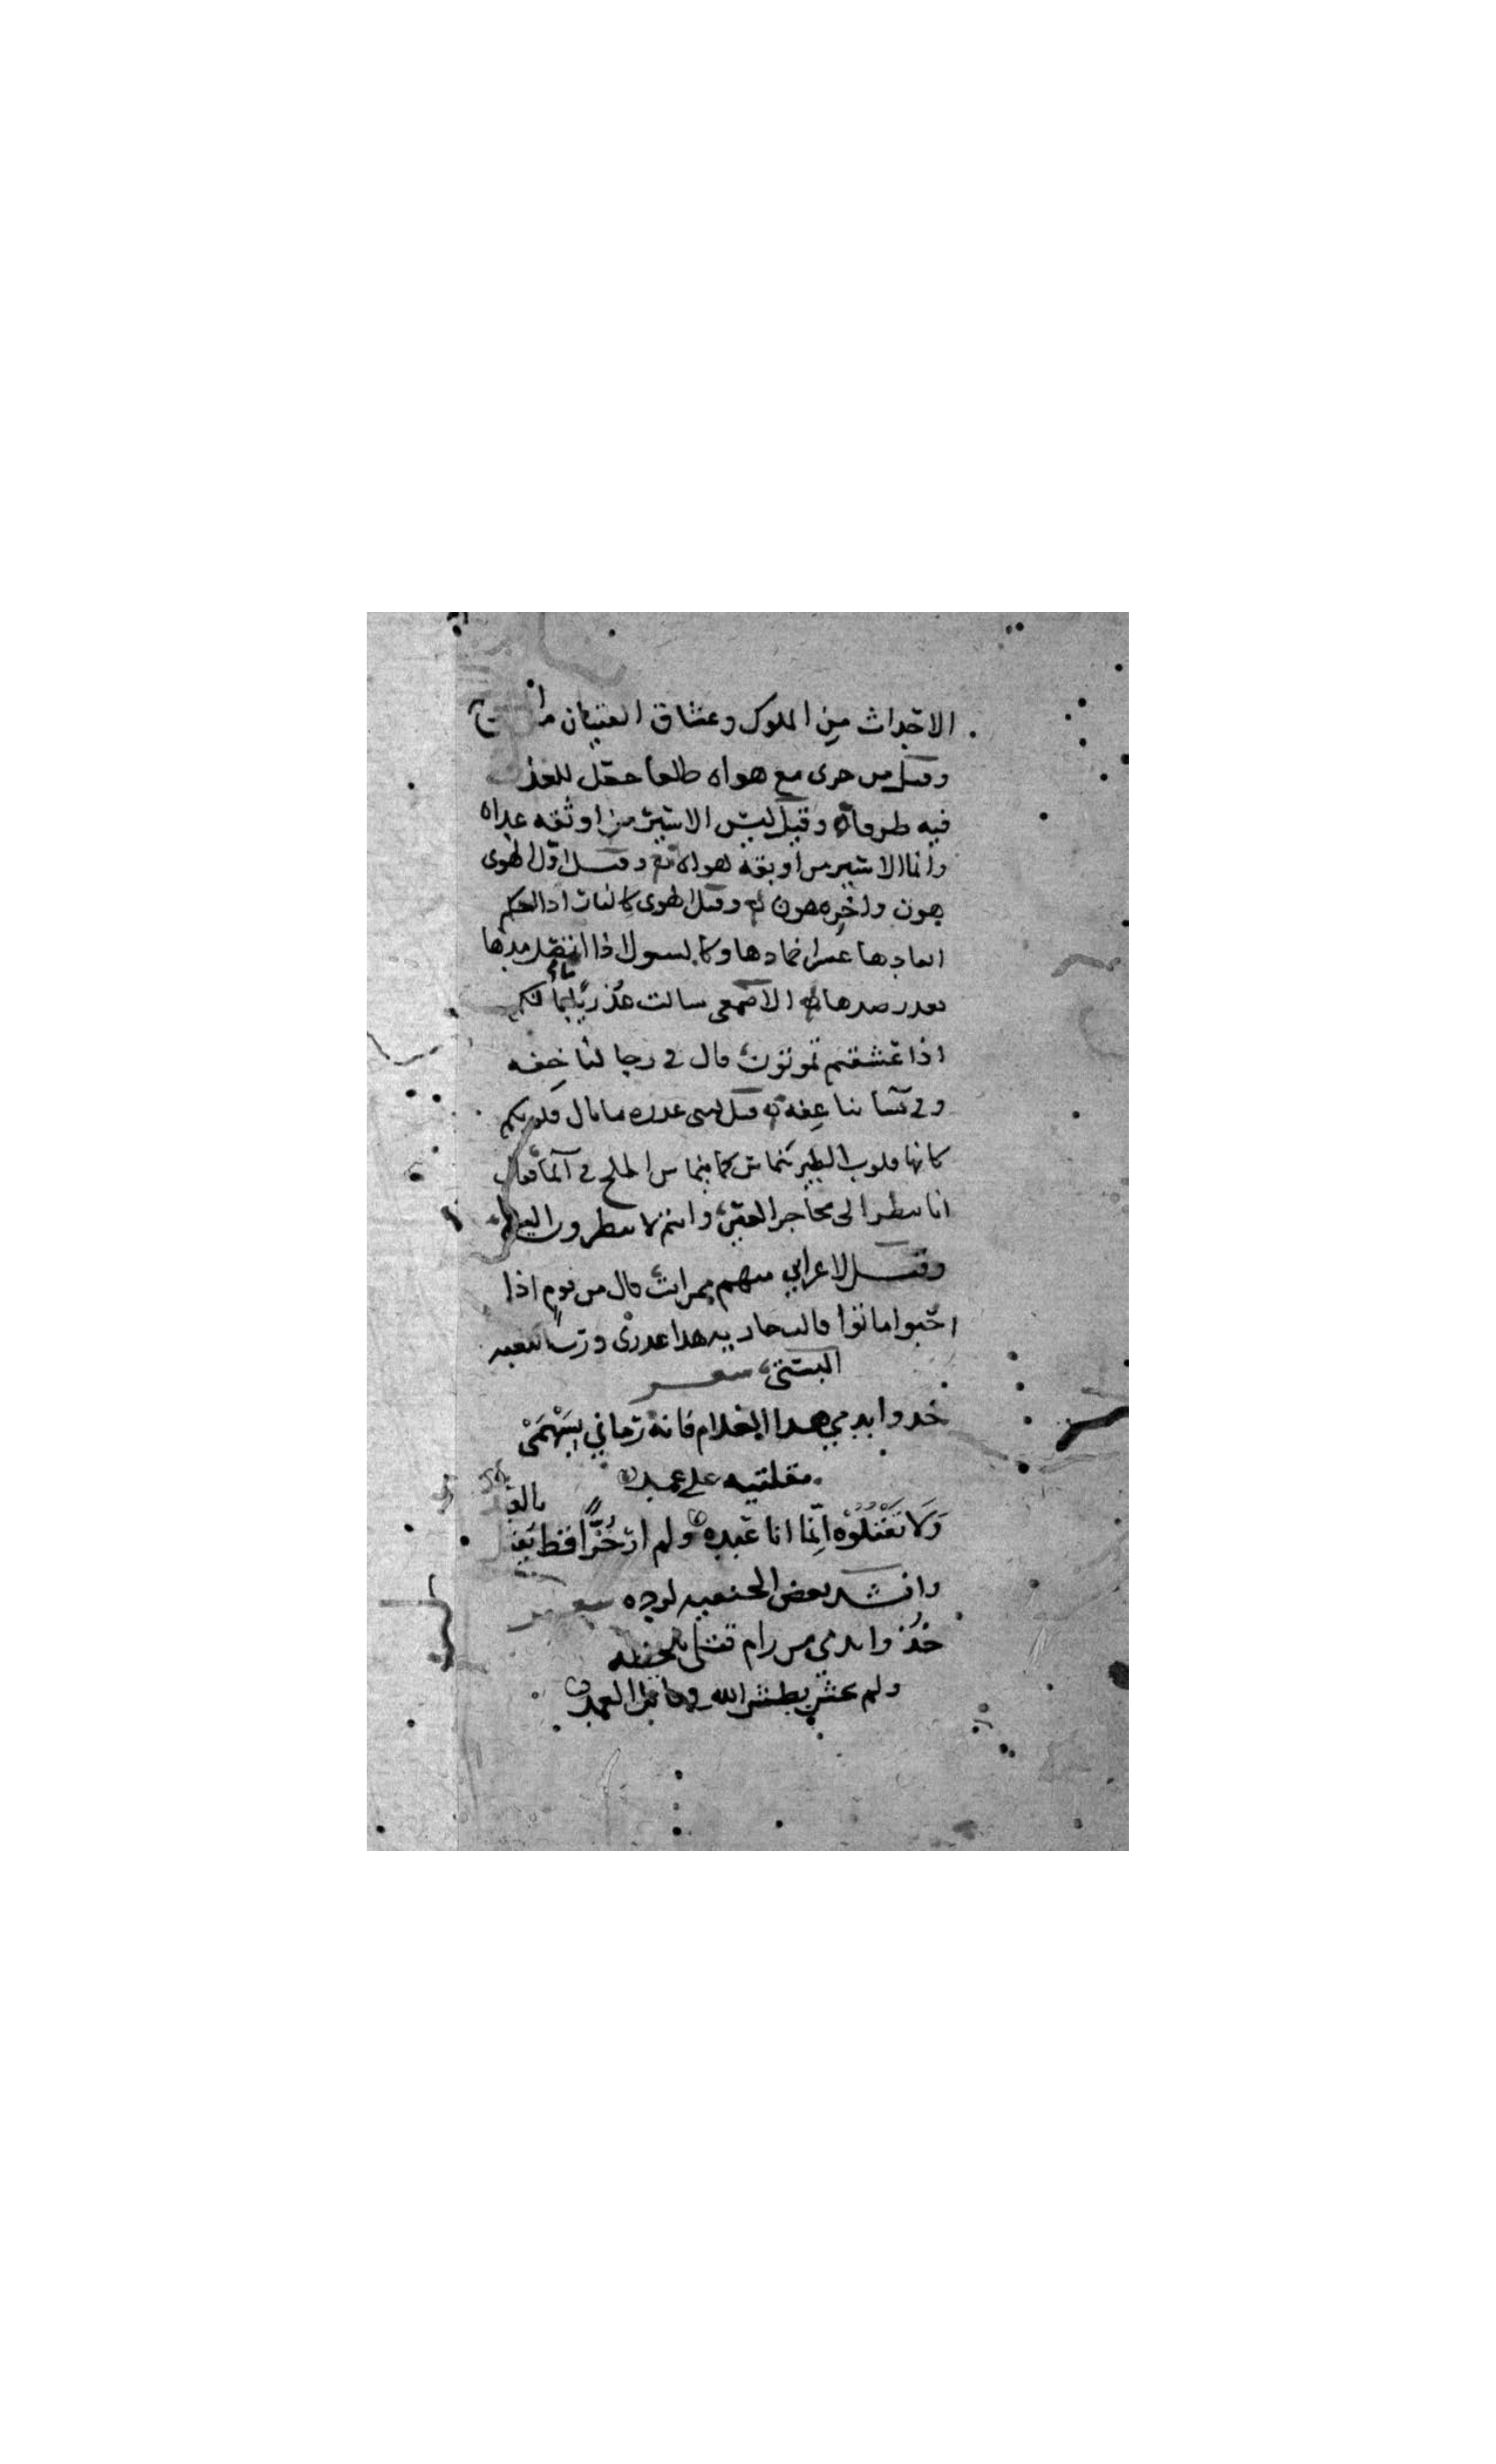 الاحداث من الملوك وعشاق الفتيان
وقيل من جرى مع هواه طلقا جعل للعذل
فيه طرقا وقيل ليس الاسير من اوثقه عداه
وانما الاسير من اوبقه هواه وقيل اول الهوى
هون واخره هون وقيل الهوى كالنار اذا استحكم
ايقادها عسر اخمادها وكالسيول اذا اتصل مدها
تعذر صدها الاصمعي سالت عذريا ما لكم
اذا عشقتم تموتون قال في رجالنا خفه
وفي نسائنا عفه قيل لبني عذره ما بال قلوبكم
كانها قلوب الطير تنماث كما ينماث الملح في الما فقال
انا ننظر الى محاجر اعين وانتم لا تنظرون اليها
وقيل لاعرابي منهم ممن انت قال من قوم اذا
احبوا ماتوا قالت جاريه هذا عذرى ورب الكعبه
البستي شعر
خذوا بدمي هذا الغلام فانه رماني بسهمى
مقلتيه على عمد
ولا تقتلوه انما انا عبده ولم ار حرا قط يقتل بالعبد
وانشد بعض الحنفيه لولده شعر
خذوا بدمى من رام قتلى بلحظه
ولم يخش بطش الله فى قاتل العمد